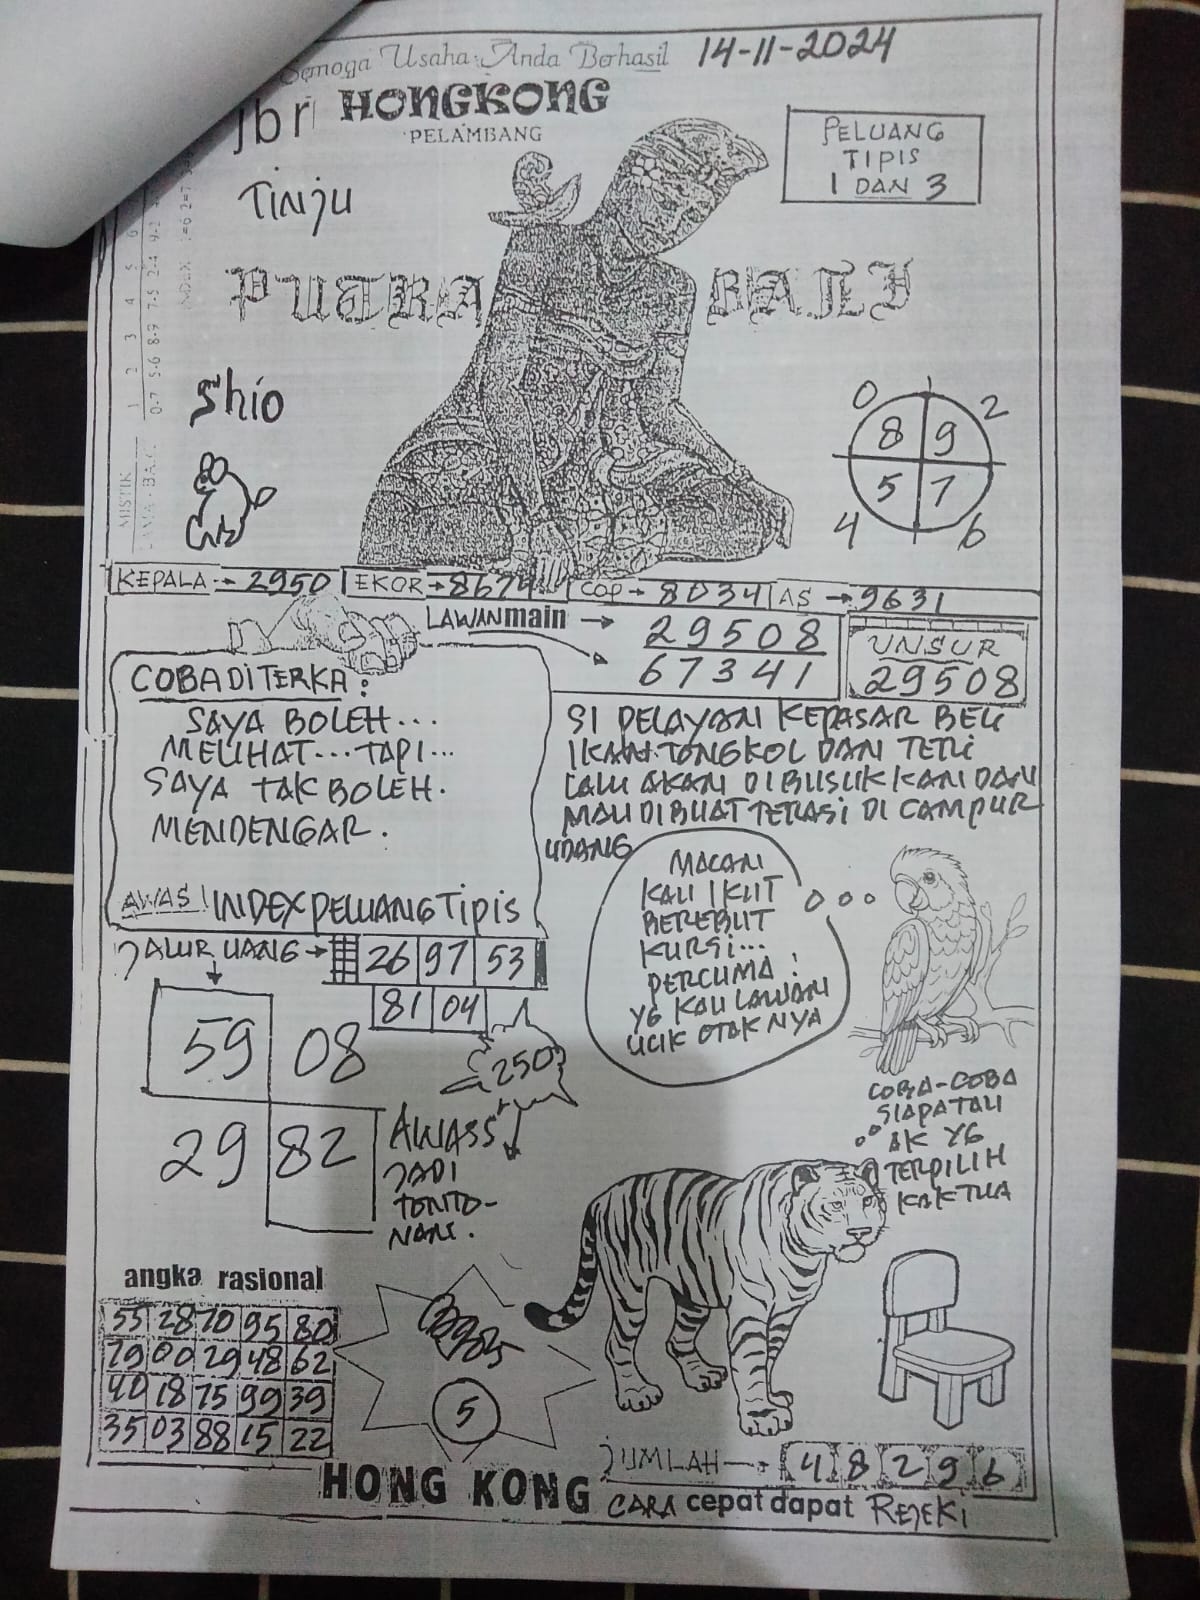 Semoga Usaha Anda Berhasil 14-11-2024
jbr HONGKONG
PELAMBANG
PELUANG
TIPIS
1 DAN 3
Tinju
PUTRA BALI
Shio
MISTIK
0 2
8 9
5 7
4 6
KEPALA → 2950 EKOR → 8674 COP → 8034 AS → 9631
LAWAN main → 29508
67341
UNSUR
29508
COBA DITERKA :
SAYA BOLEH...
MELIHAT... TAPI...
SAYA TAK BOLEH.
MENDENGAR.
AWAS! INDEX PELUANG TIPIS
SI PELAYAN KEPASAR BELI
IKAN TONGKOL DAN TERI
LALU AKAN DIBUSUK KAN DAN
MAU DIBUAT TERASI DI CAMPUR
UDANG
MACAN
KAU IKUT
BEREBUT
KURSI...
PERCUMA !
YG KAU LAWAN
LICIK OTAK NYA
JALUR UANG → 26 97 53
81 04
59 08
29 82
250
AWASS
JADI
TONTO-
NAN.
COBA-COBA
SIAPA TAU
AK YG
TERPILIH
KAKTUA
angka rasional
55 28 70 95 80
79 00 29 48 62
40 18 75 99 39
35 03 88 15 22
5
JUMLAH → 4 8 2 9 6
HONG KONG CARA cepat dapat REJEKI